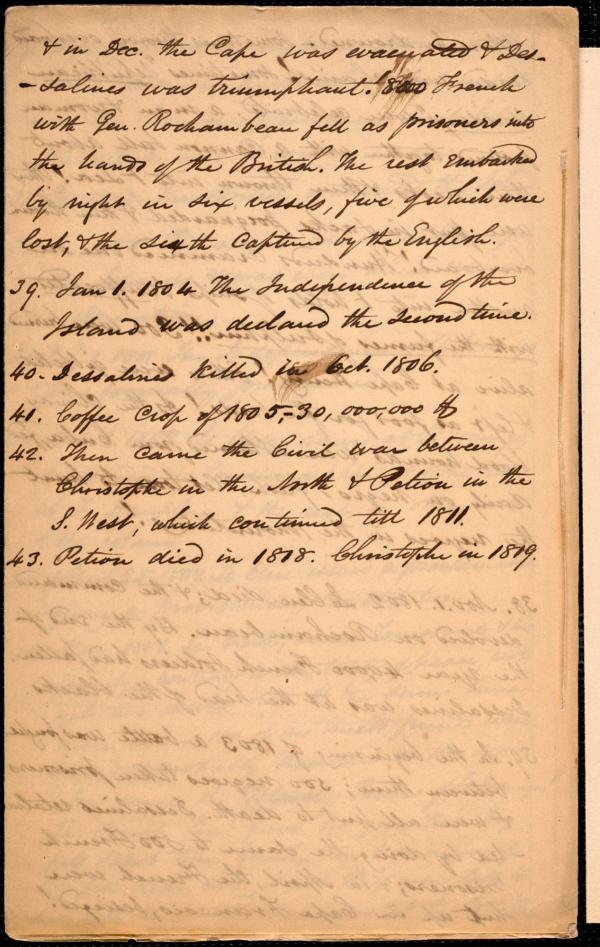 & in Dec. the Cape was evacuated & Des-
-salines was triumphant! 8000 French
with Gen. Rochambeau fell as prisoners into
the hands of the British. The rest embarked
by night in six vessels, five of which were
lost, & the sixth captured by the English.
39. Jan 1. 1804 The Independence of the
Island was declared the second time.
40. Dessalines killed in Oct. 1806.
41. Coffee crop of 1805,-30,000,000 lb
42. Then came the Civil war between
Christophe in the North & Petion in the
S. West, which continued till 1811.
43. Petion died in 1818. Christophe in 1819.